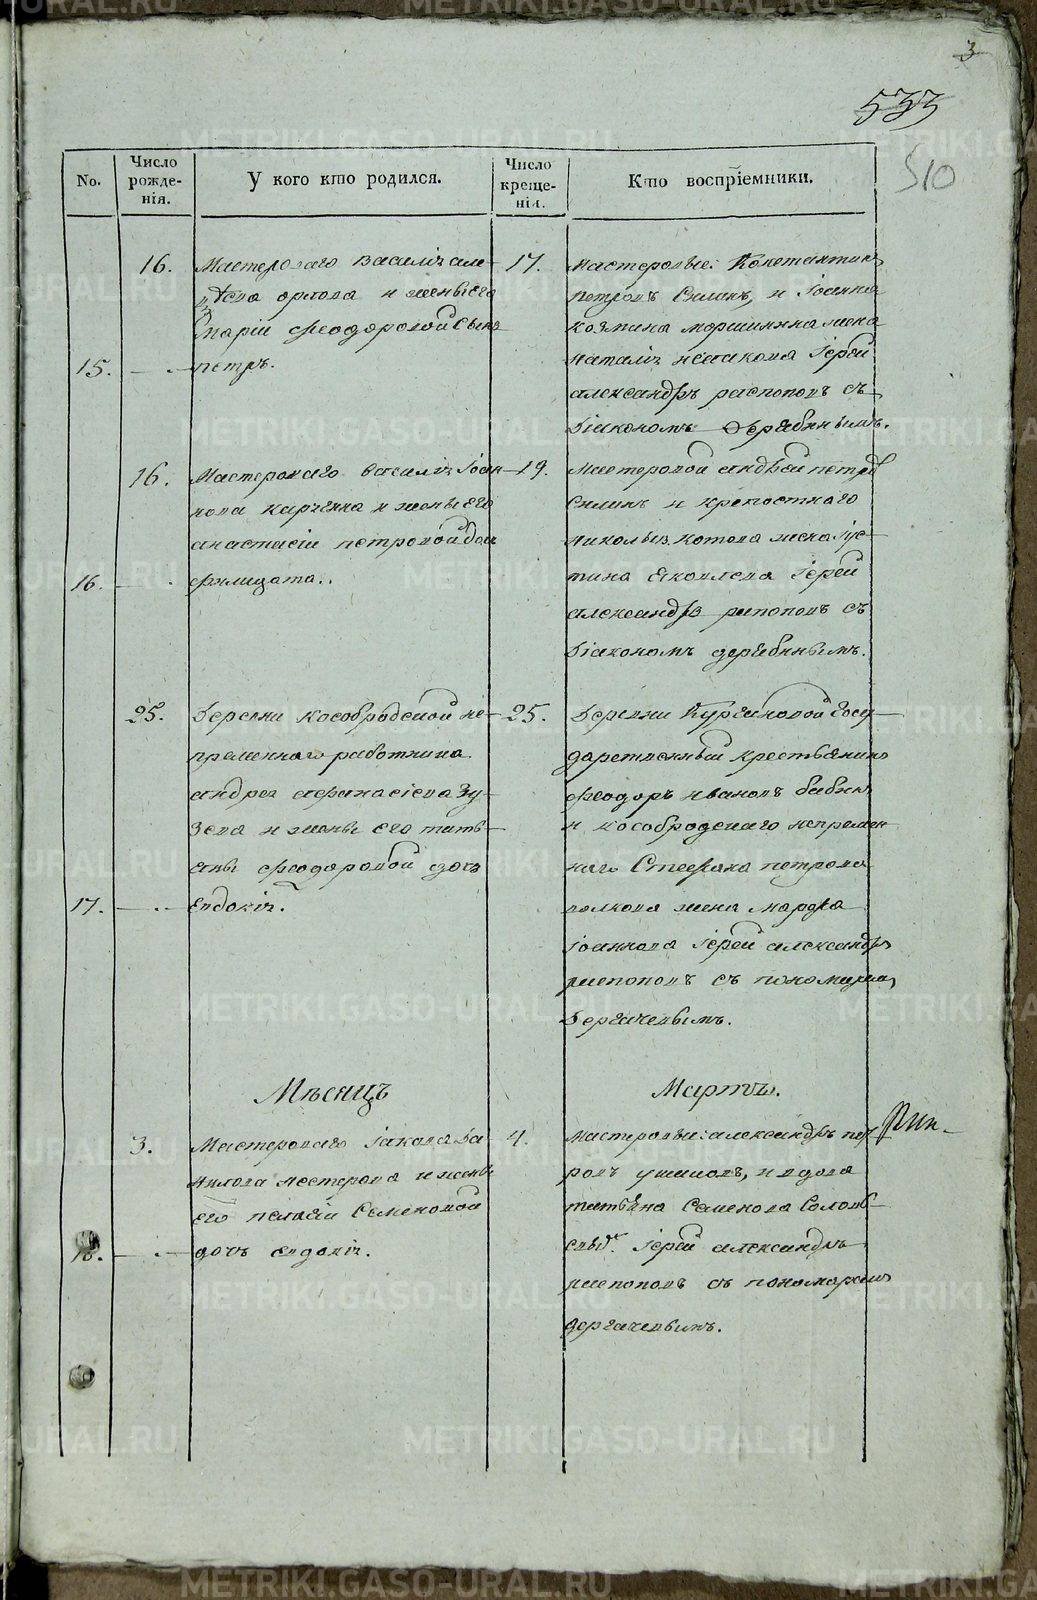 3
533
510
No.
Число рожде- нія.
У кого кто родился.
Число креще- нія.
Кто воспріемники.
16. Мастероваго василія але-
орлова и жены его
маріи феодоровой сынъ
15. петръ.
17. Мастеровые: Константинъ
петровъ Силинъ, и Іоанна
козмина жена
наталія исакова Іерей
александръ распоповъ съ
діакономъ
16. Мастероваго василія Іоан-
нова и жены его
анастасіи петровой дочь
16. филицата.
19. Мастеровой андрей петров
Силинъ и крепостнаго
котова жена Іус-
тина яковлева Іерей
александръ распоповъ съ
діакономъ
25. Деревни кособродской не-
пременнаго работника
андрея афанасіева Зу-
ева и жены его тать-
яны феодоровой дочь
17. Евдокія.
25. Деревни Кургановой госу-
дарственный крестьянинъ
феодоръ ивановъ бабинъ
и кособродскаго непремен-
наго Стефана петрова
волкова жена марфа
Іоаннова Іерей александръ
распоповъ съ пономаремъ
Дергачевымъ.
Мѣсяцъ
Мартъ.
3. Мастероваго Іакова Да-
нилова нестерова и жены
его пелагіи Семеновой
18. дочь евдокія.
4. Мастеровые: александръ пет
ровъ ушаковъ, и вдова
татьяна Семенова
Іерей александръ
распоповъ съ пономаремъ
дергачевымъ.
METRIKI.GASO-URAL.RU